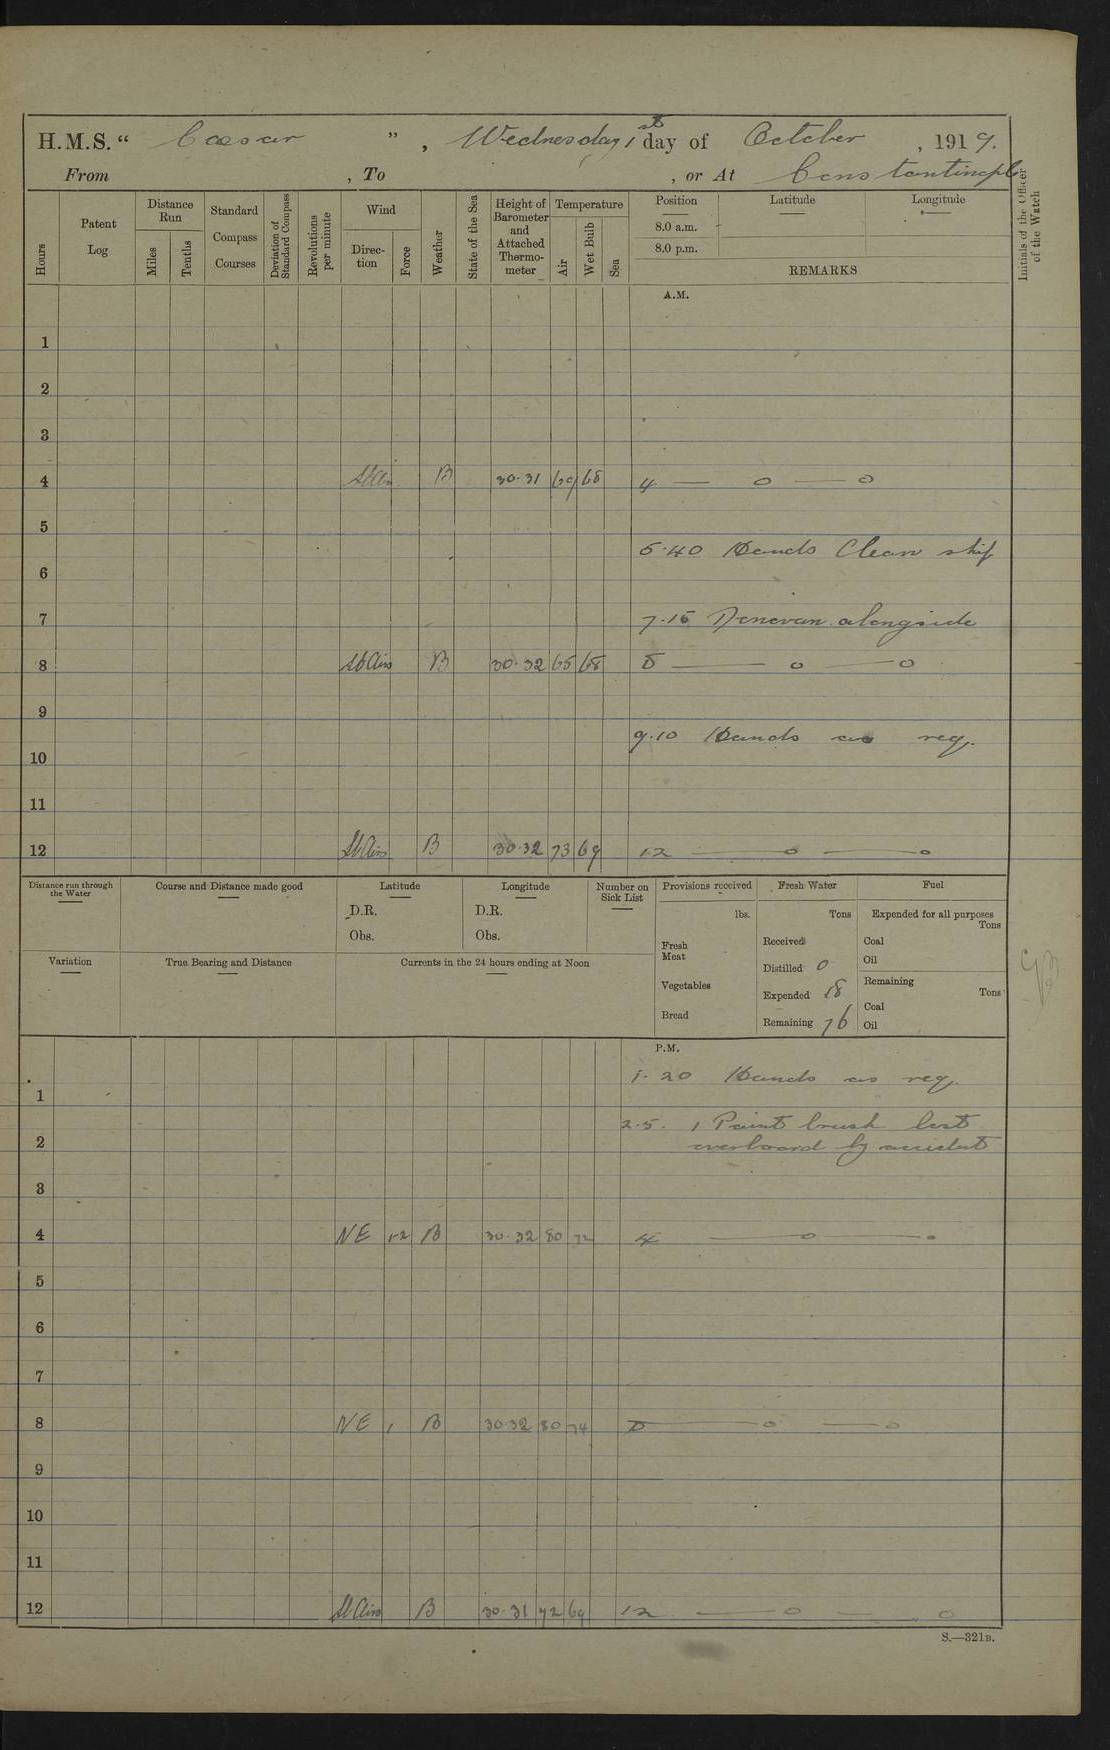 H.M.S. " Caesar ", Wednesday 1st day of October, 1919.
From , To , or At Constantinople
Hours
Patent Log
Distance Run
Miles
Tenths
Standard Compass Courses
Deviation of Standard Compass
Revolutions per minute
Wind
Direction
Force
Weather
State of the Sea
Height of Barometer and Attached Thermometer
Temperature
Air
Wet Bulb
Sea
Position
Latitude
Longitude
8.0 a.m.
8.0 p.m.
REMARKS
Initials of the Officer of the Watch
A.M.
1
2
3
4 B 30.31 69 68 4 — o — o
5
5.40 Hands Clean ship
6
7 7.15 alongside
8 Lt Airs B 30.32 65 68 8 — o — o
9
9.10 Hands as req.
10
11
12 Lt Airs B 30.32 73 69 12 — o — o
Distance run through the Water
Course and Distance made good
Latitude
D.R.
Obs.
Longitude
D.R.
Obs.
Number on Sick List
Provisions received
lbs.
Fresh Meat
Vegetables
Bread
Fresh Water
Tons
Received
Distilled 0
Expended 18
Remaining 76
Fuel
Expended for all purposes
Tons
Coal
Oil
Remaining
Tons
Coal
Oil
Variation
True Bearing and Distance
Currents in the 24 hours ending at Noon
P.M.
1.20 Hands as req.
1
2.5. 1 Paint brush lost
2 overboard by accident
3
4 NE 1-2 B 30.32 80 72 4 — o — o
5
6
7
8 NE 1 B 30.32 80 74 8 — o — o
9
10
11
12 Lt Airs B 30.31 72 69 12 — o — o
S.—321B.